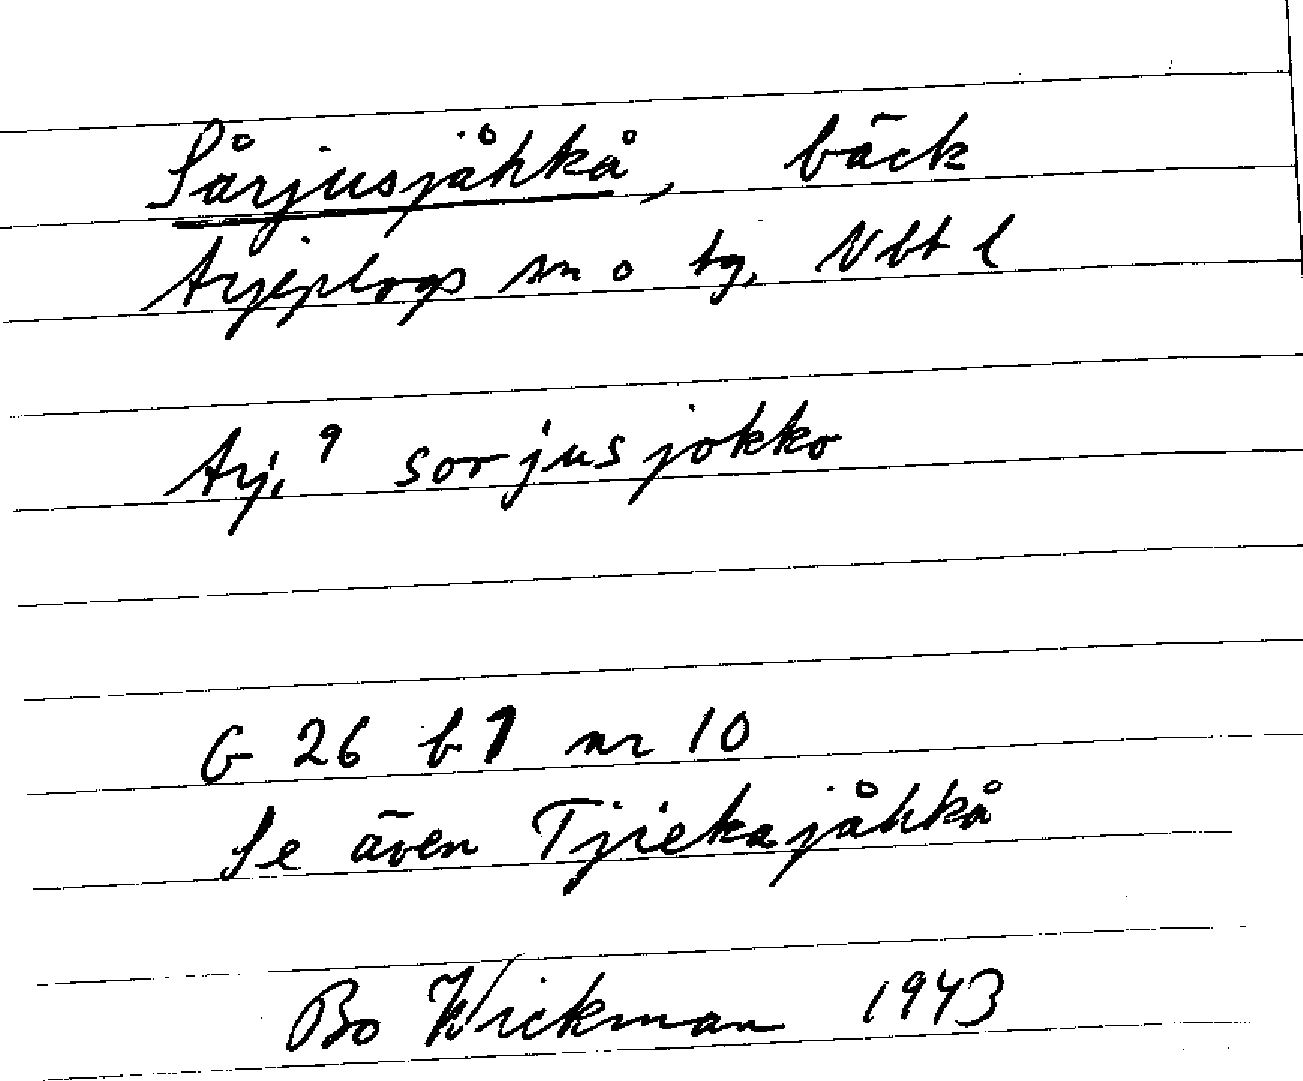 Sårjusjåhkå, bäck
Arjeplogs sn o tg, Nbt l
Arj. 9 sorjusjokko
G 26 b 1 nr 10
Se även Tjiekajåhkå
Bo Wickman 1943